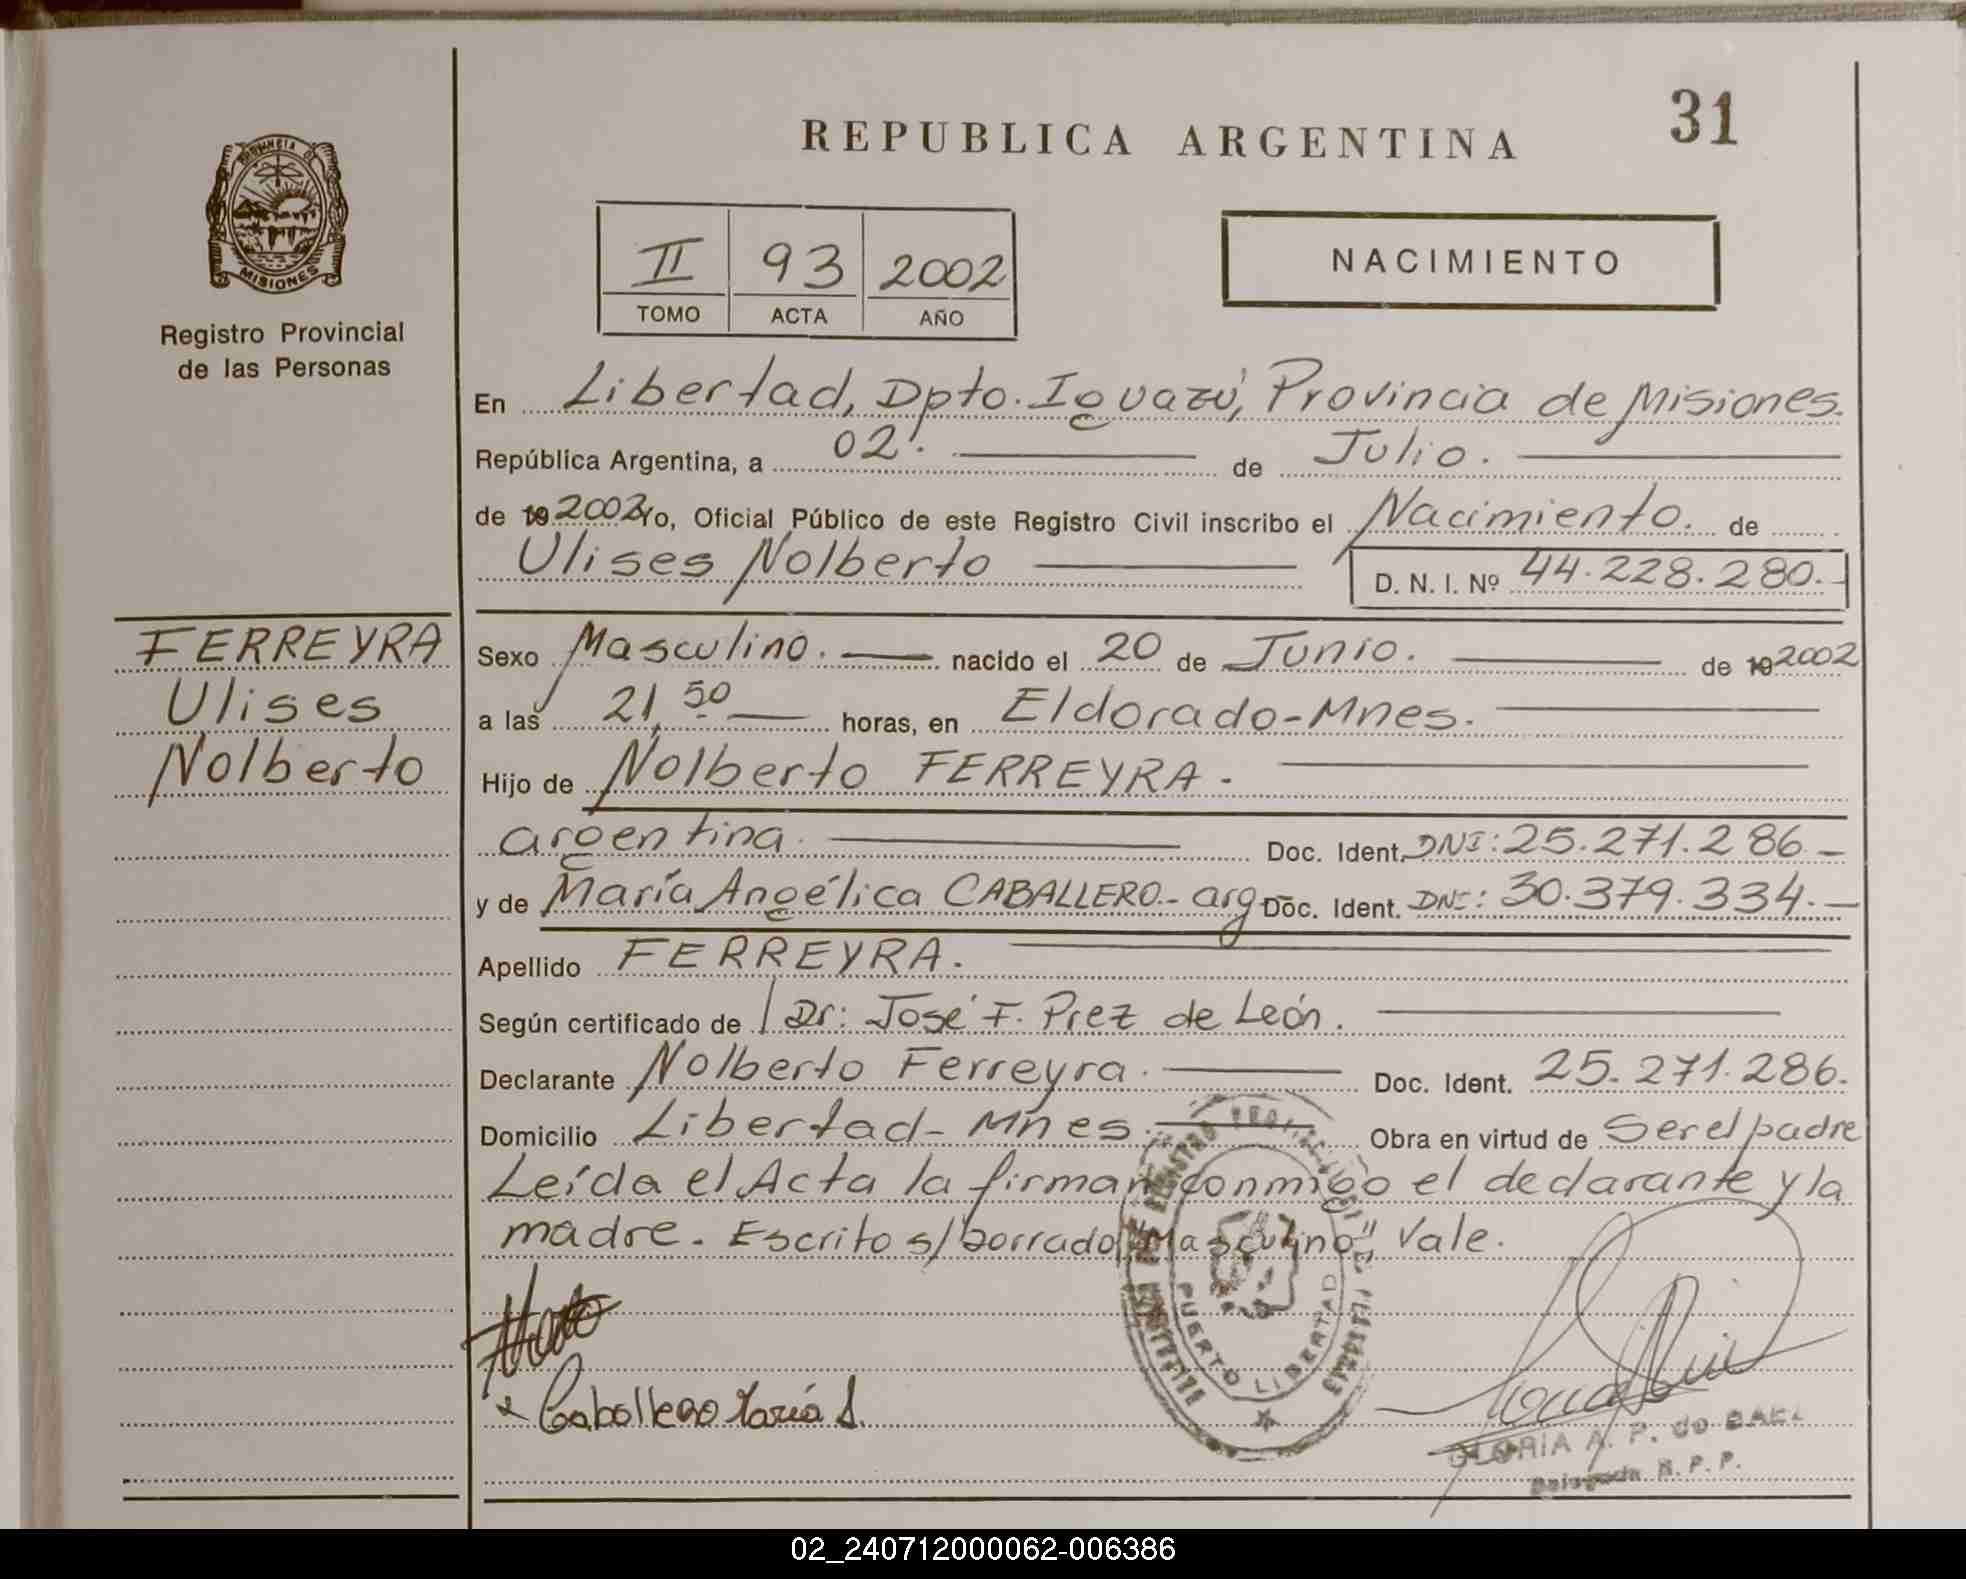 REPUBLICA ARGENTINA
31
PROVINCIA DE
MISIONES
Registro Provincial
de las Personas
II 93 2002
TOMO ACTA AÑO
NACIMIENTO
En Libertad, Dpto. Iguazú, Provincia de Misiones.
República Argentina, a 02. de Julio.
de 19 2002 Yo, Oficial Público de este Registro Civil inscribo el Nacimiento. de
Ulises Nolberto D. N. I. Nº 44.228.280.-
FERREYRA
Ulises
Nolberto
Sexo Masculino. nacido el 20 de Junio. de 19 2002
a las 21,50 horas, en Eldorado-Mnes.
Hijo de Nolberto FERREYRA -
argentina. Doc. Ident. DNI: 25.271.286.-
y de María Angélica CABALLERO.- arg Doc. Ident. DNI: 30.379.334.-
Apellido FERREYRA.
Según certificado de Dr: José F. Prez de León.
Declarante Nolberto Ferreyra. Doc. Ident. 25.271.286.
Domicilio Libertad- Mnes. Obra en virtud de Ser el padre
Leída el Acta la firman conmigo el declarante y la
madre. Escrito s/borrado "Masculino" Vale.
PUERTO LIBERTAD
x Caballero María A.
GLORIA A. P. de
Delegada R. P. P.
02_240712000062-006386